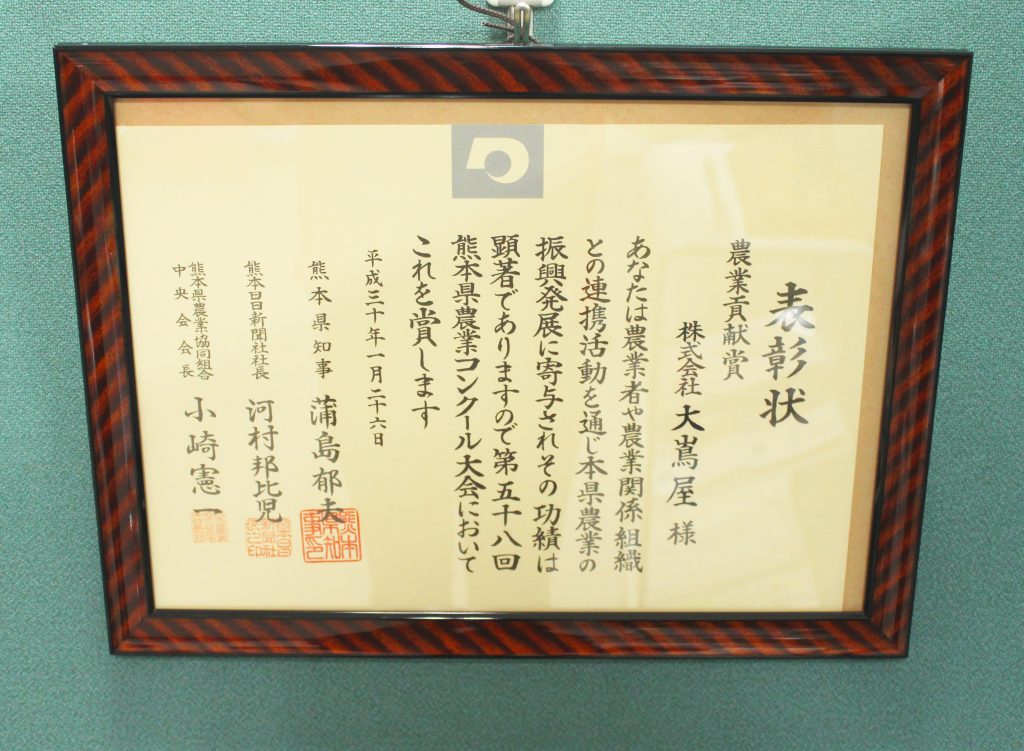 表彰状
農業貢献賞
株式会社 大嶌屋 様
あなたは農業者や農業関係組織
との連携活動を通じ本県農業の
振興発展に寄与されその功績は
顕著でありますので第五十八回
熊本県農業コンクール大会において
これを賞します
平成三十年一月二十六日
熊本県知事 蒲島郁夫
熊本日日新聞社社長 河村邦比児
熊本県農業協同組合
中央会会長 小崎憲一